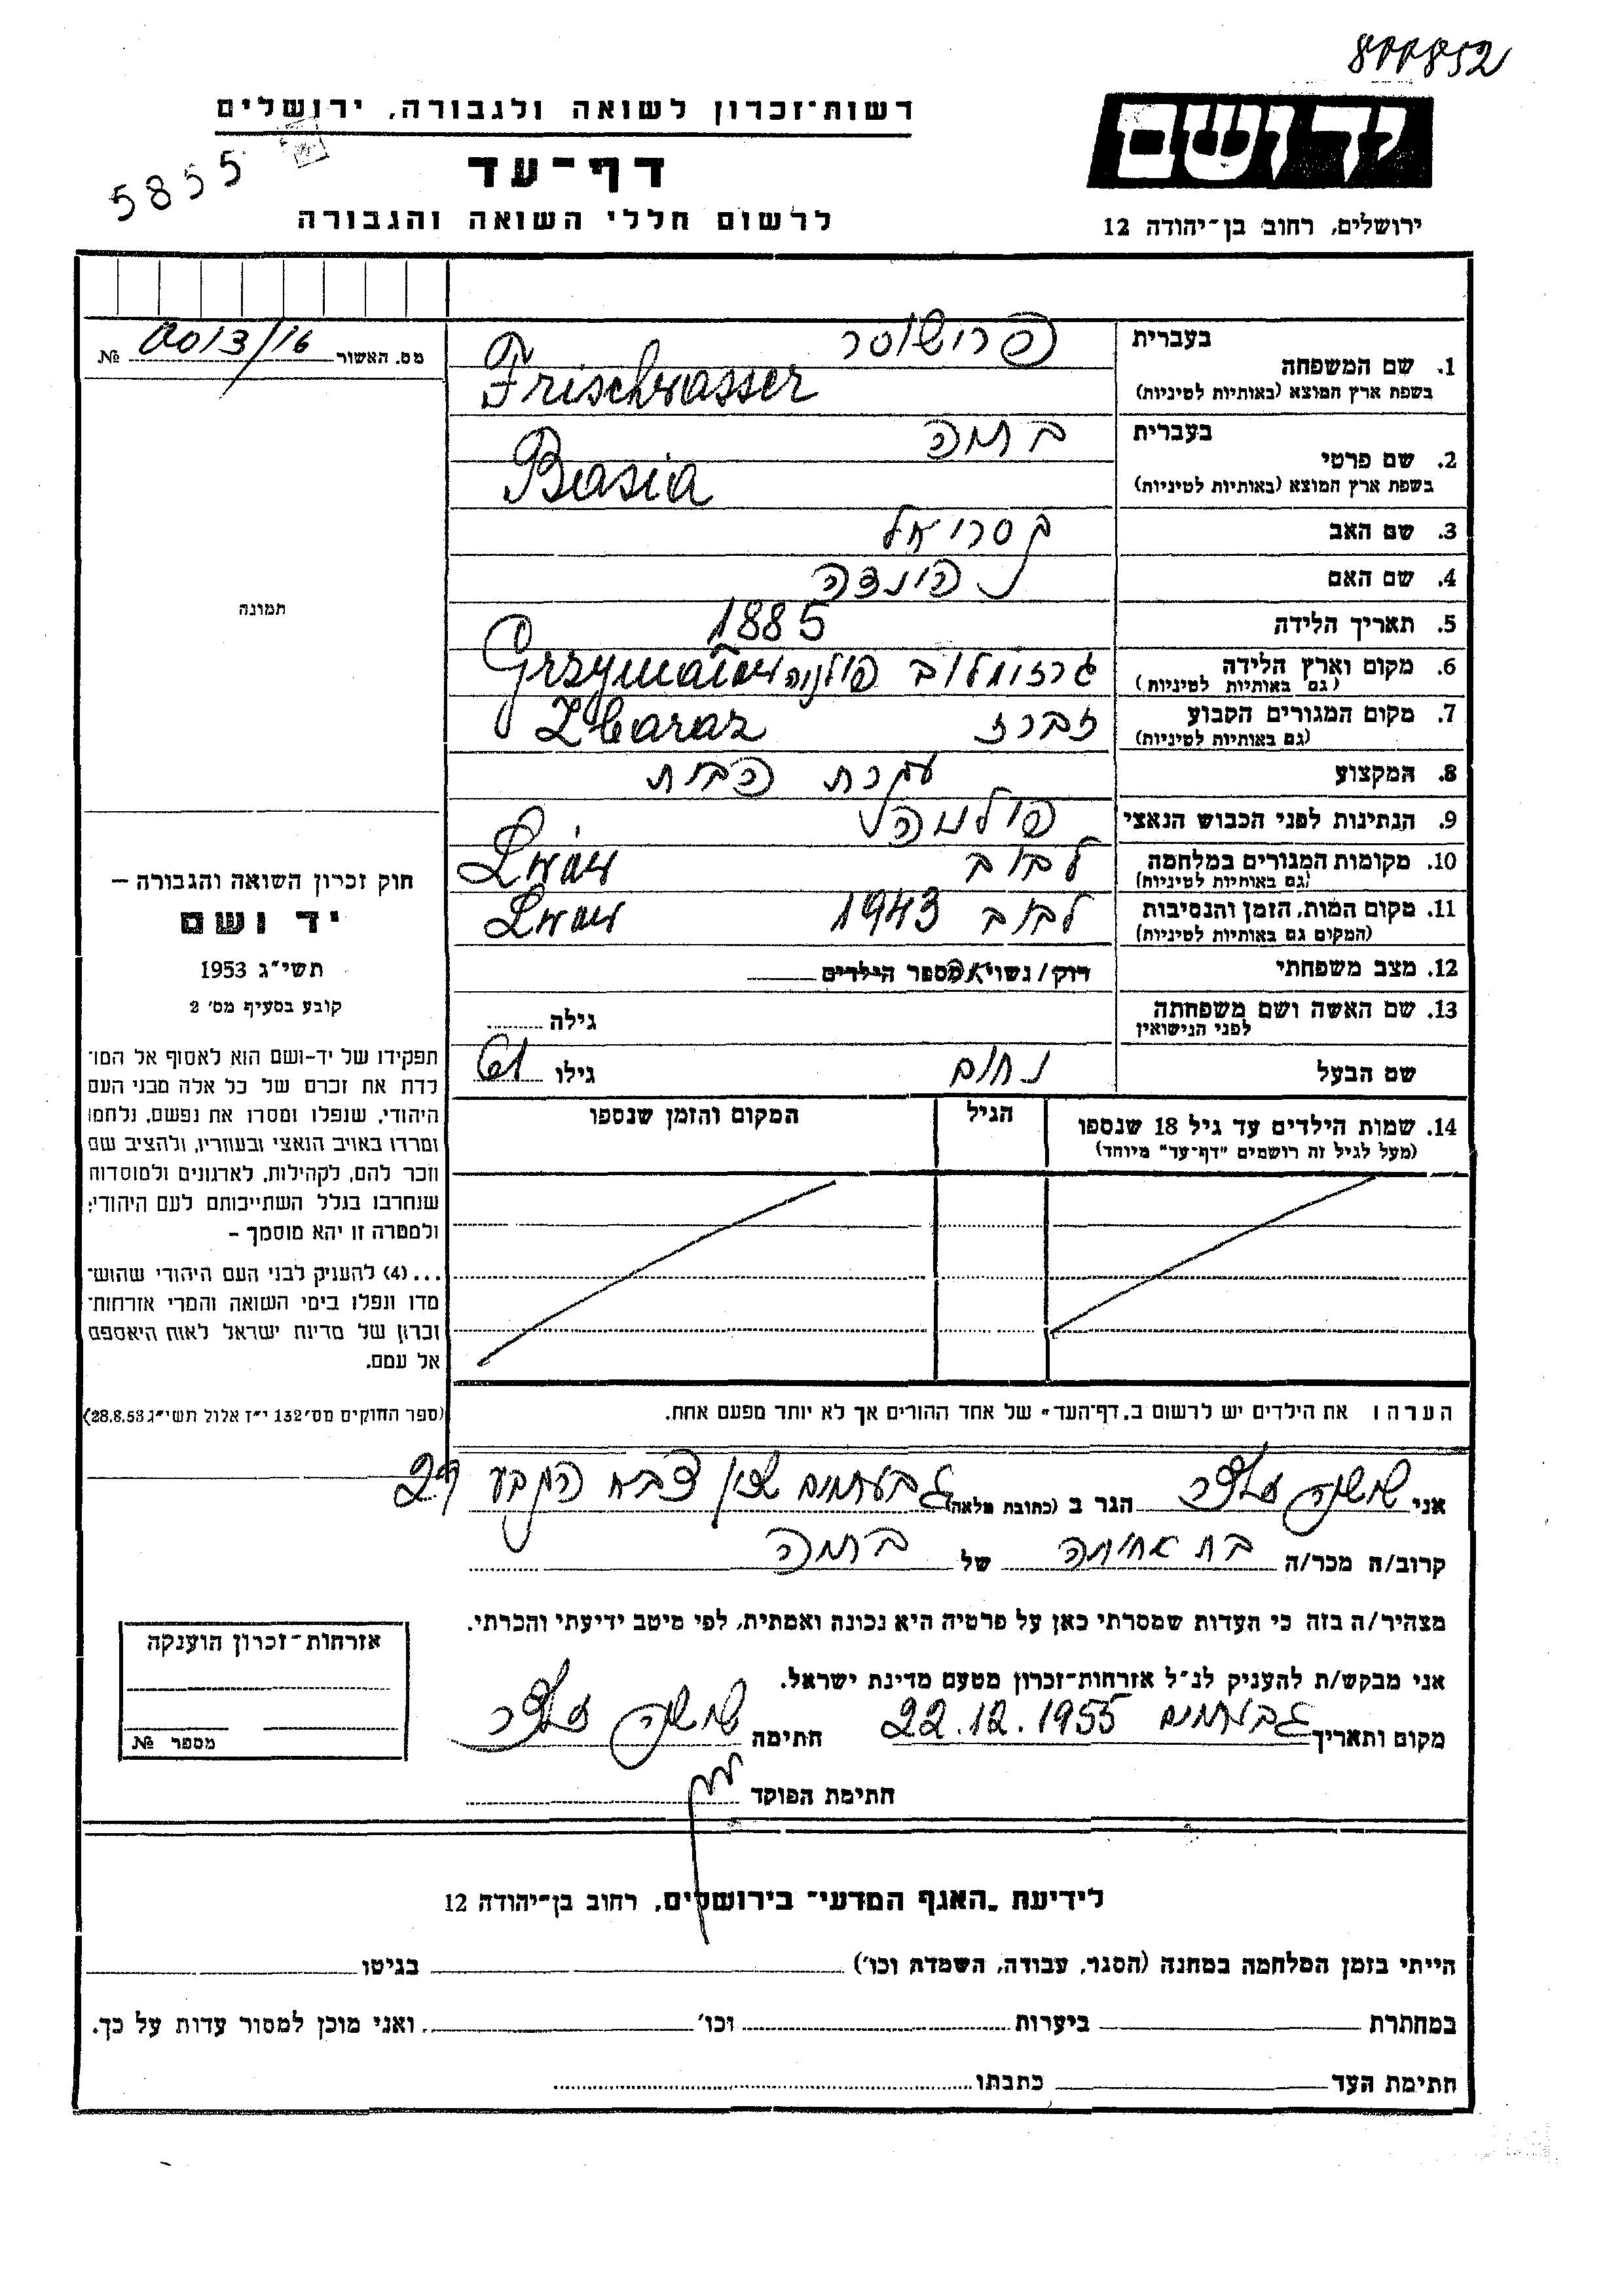 800852
יד ושם
ירושלים, רחוב בן־יהודה 12
רשות־זכרון לשואה ולגבורה, ירושלים
5855
דף־עד
לרשום חללי השואה והגבורה
מס. האשור 0013/16 №
תמונה
בעברית
1. שם המשפחה
בשפת ארץ המוצא (באותיות לטיניות)
פרושוסר
Frischwasser
בעברית
2. שם פרטי
בשפת ארץ המוצא (באותיות לטיניות)
Basia
3. שם האב
4. שם האם
5. תאריך הלידה 1885
6. מקום וארץ הלידה
(גם באותיות לטיניות)
גרזומלוב פולניה Grzymałów
7. מקום המגורים הקבוע
(גם באותיות לטיניות)
זברז Zbaraz
8. המקצוע עקרת הבית
9. הנתינות לפני הכבוש הנאצי
10. מקומות המגורים במלחמה
(גם באותיות לטיניות)
לבוב Lwów
11. מקום המות, הזמן והנסיבות
(המקום גם באותיות לטיניות)
לבוב 1943 Lwów
12. מצב משפחתי רוק/נשויאה מספר הילדים
13. שם האשה ושם משפחתה
לפני הנישואין
גילה
שם הבעל נחום גילו 61
14. שמות הילדים עד גיל 18 שנספו
(מעל לגיל זה רושמים "דף־עד" מיוחד)
הגיל
המקום והזמן שנספו
הערה: את הילדים יש לרשום ב„דף־העד" של אחד ההורים אך לא יותר מפעם אחת.
חוק זכרון השואה והגבורה —
יד ושם
תשי״ג 1953
קובע בסעיף מס׳ 2
תפקידו של יד-ושם הוא לאסוף אל המו־
לדת את זכרם של כל אלה מבני העם
היהודי, שנפלו ומסרו את נפשם, נלחמו
ומרדו באויב הנאצי ובעוזריו, ולהציב שם
וזכר להם, לקהילות, לארגונים ולמוסדות
שנחרבו בגלל השתייכותם לעם היהודי;
ולמטרה זו יהא מוסמך –
...(4) להעניק לבני העם היהודי שהוש־
מדו ונפלו בימי השואה והמרי אזרחות־
זכרון של מדינת ישראל לאות היאספם
אל עמם.
(ספר החוקים מס׳ 132 י״ז אלול תשי״ג 28.8.53)
אני הגר ב (כתובת מלאה) גבעתיים
קרוב/ה מכר/ה בת אחותה של
מצהיר/ה בזה כי העדות שמסרתי כאן על פרטיה היא נכונה ואמתית, לפי מיטב ידיעתי והכרתי.
אני מבקש/ת להעניק לנ״ל אזרחות־זכרון מטעם מדינת ישראל.
מקום ותאריך גבעתיים 22.12.1955 חתימה
חתימת הפוקד
אזרחות־זכרון הוענקה
מספר №
לידיעת „האגף המדעי" בירושלים, רחוב בן־יהודה 12
הייתי בזמן המלחמה במחנה (הסגר, עבודה, השמדת וכו׳) בגיטו
במחתרת ביערות וכו׳ ואני מוכן למסור עדות על כך.
חתימת העד כתבתו